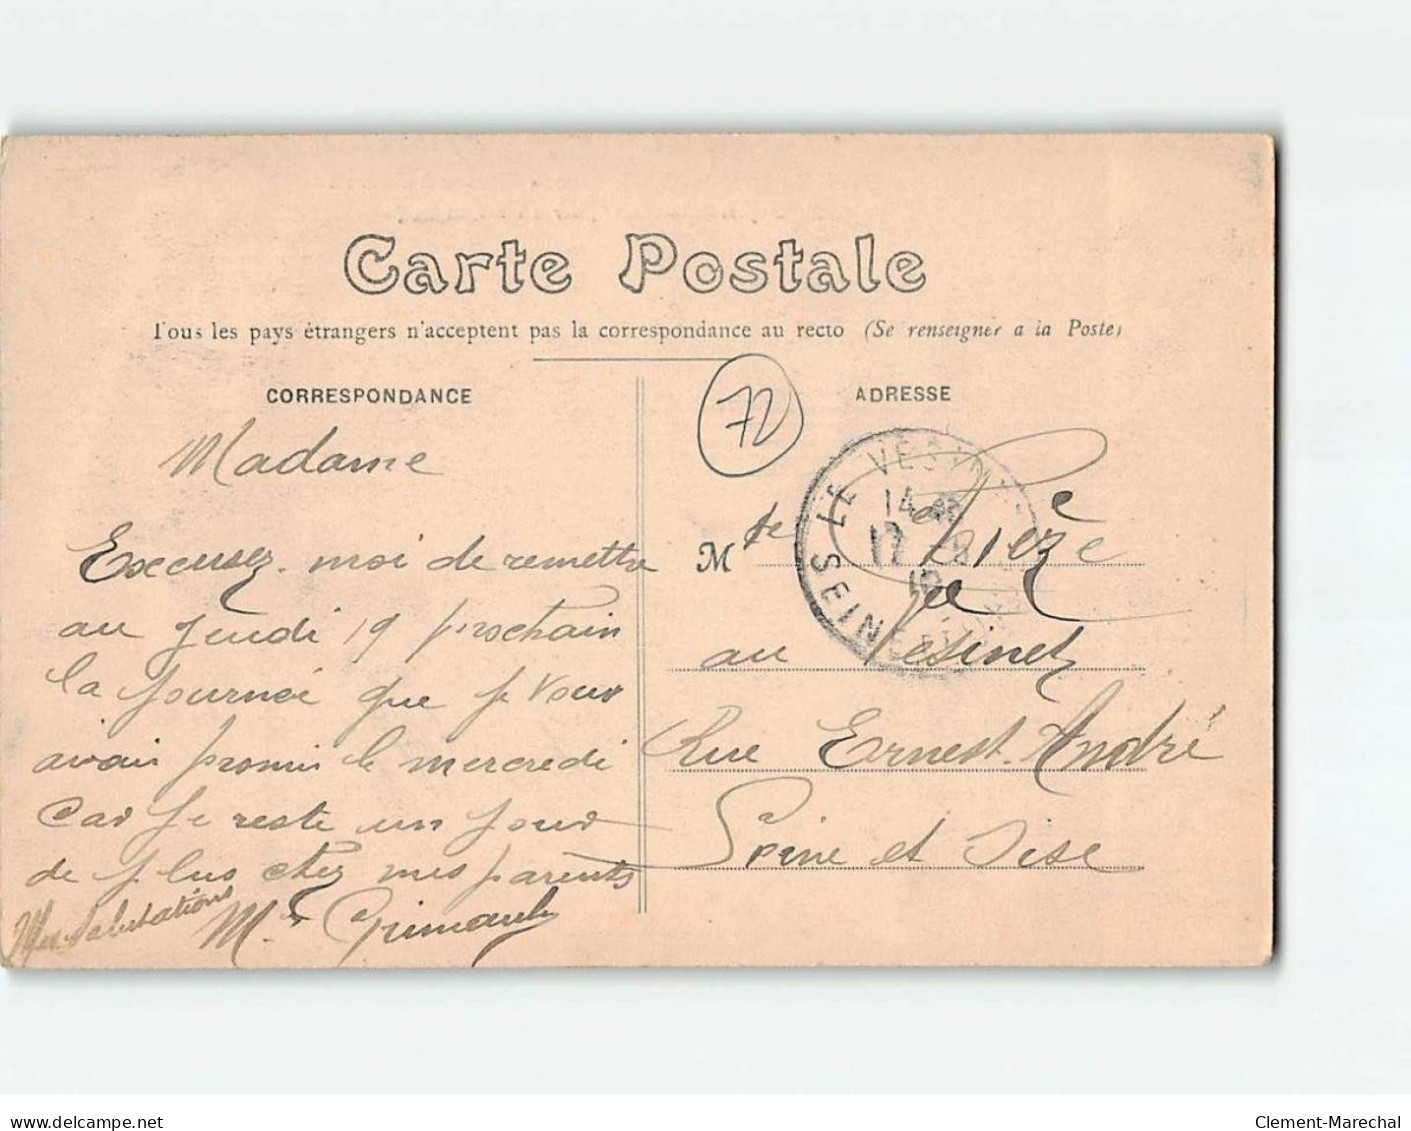 Carte Postale
Tous les pays étrangers n'acceptent pas la correspondance au recto (Se renseigner a la Poste)
CORRESPONDANCE
Madame
Excusez. moi de remettre
au Jeudi 19 prochain
la Journée que je vous
avais promis le mercredi
Car je reste un jour
de plus chez mes parents
Mes Salutations
Grimault
72
ADRESSE
LE VESINET
14
SEINE-ET-OISE
M
au Vesinet
Rue Ernest. André
Seine et Oise
www.delcampe.net
Clement-Marechal